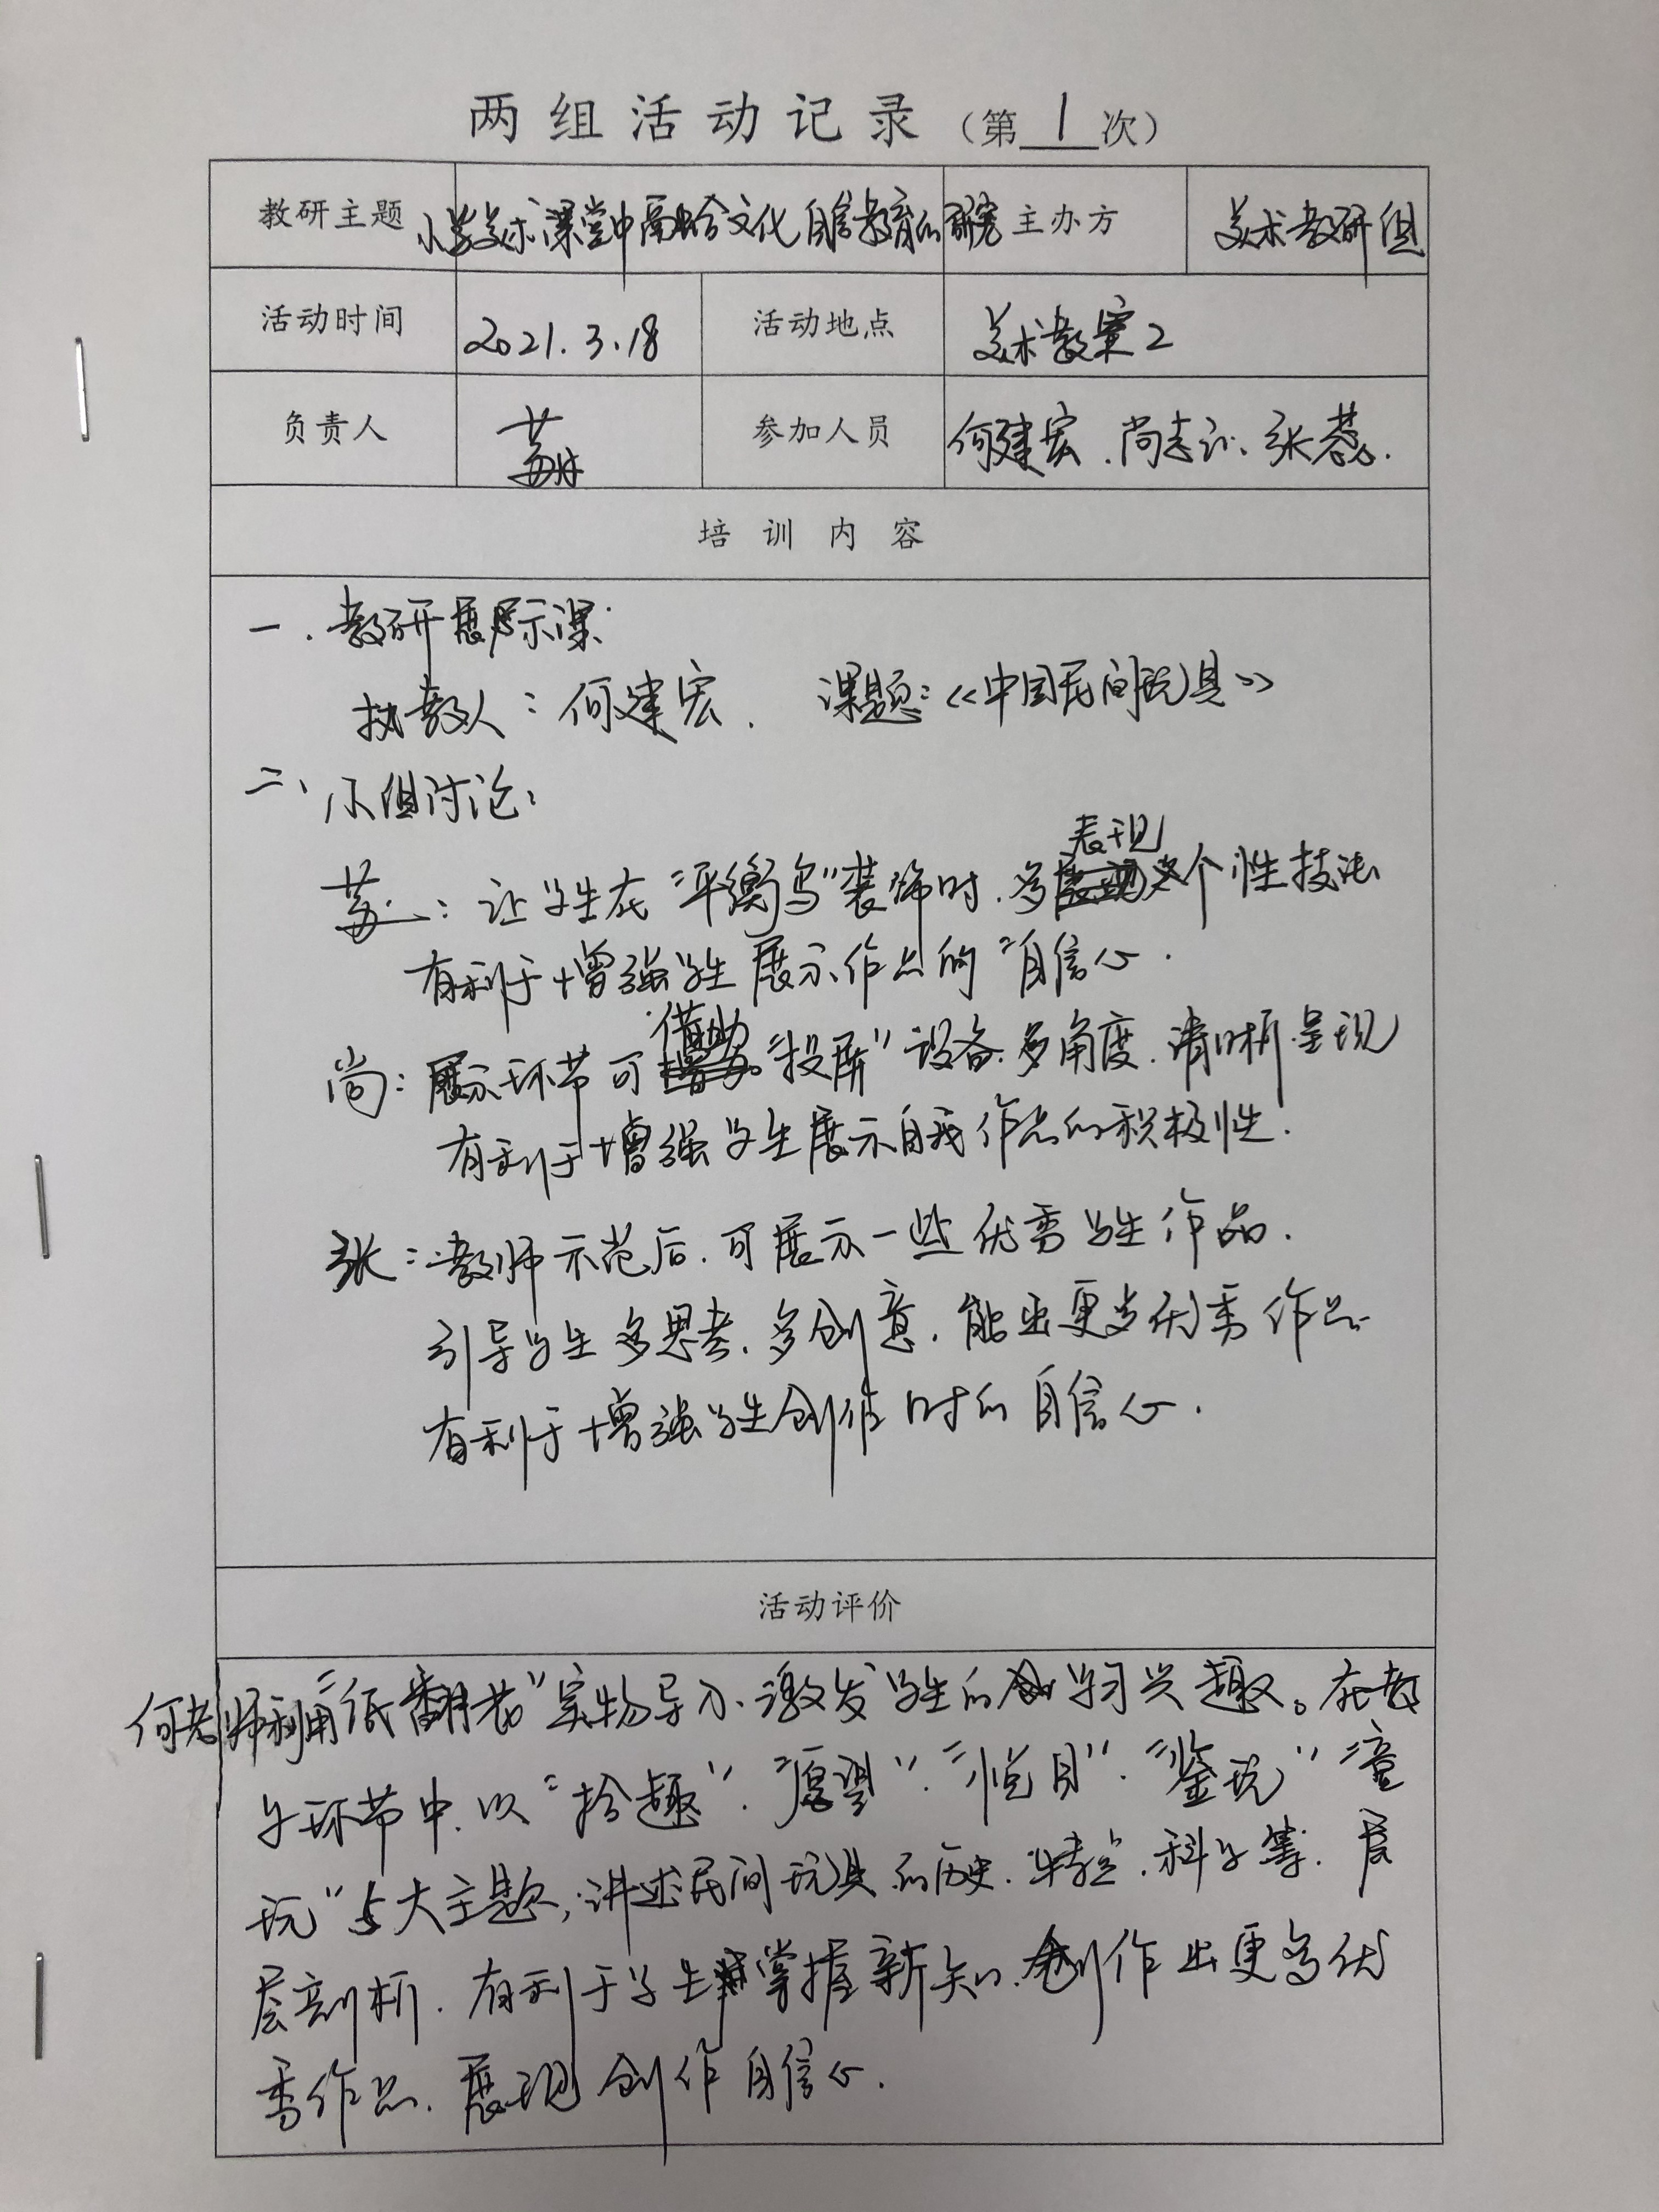 两组活动记录（第1次）
教研主题 小学美术课堂中融合文化自信教育的研究 主办方 美术教研组
活动时间 2021.3.18 活动地点 美术教室2
负责人 参加人员 何建宏、尚志、张蕊.
培训内容
一.教研展示课:
执教人:何建宏. 课题:《中国民间玩具》
二、小组讨论:
苏:让学生在"平衡鸟"装饰时.多表现个性技法
有利于增强学生展示作品的"自信心.
尚:展示环节可借助"投屏"设备.多角度.清晰呈现
有利于增强学生展示自我作品的积极性.
张:教师示范后.可展示一些优秀学生作品.
引导学生多思考.多创意.能出更多优秀作品.
有利于增强学生创作时的自信心.
活动评价
何老师利用"纸翻花"实物导入、激发学生的学习兴趣。在教
学环节中.以"拾趣"."愿望"."悦目"."鉴玩""童
玩"5大主题,讲述民间玩具的历史.特点.科学等.层
层剖析.有利于学生掌握新知.创作出更多优
秀作品.展现创作自信心.